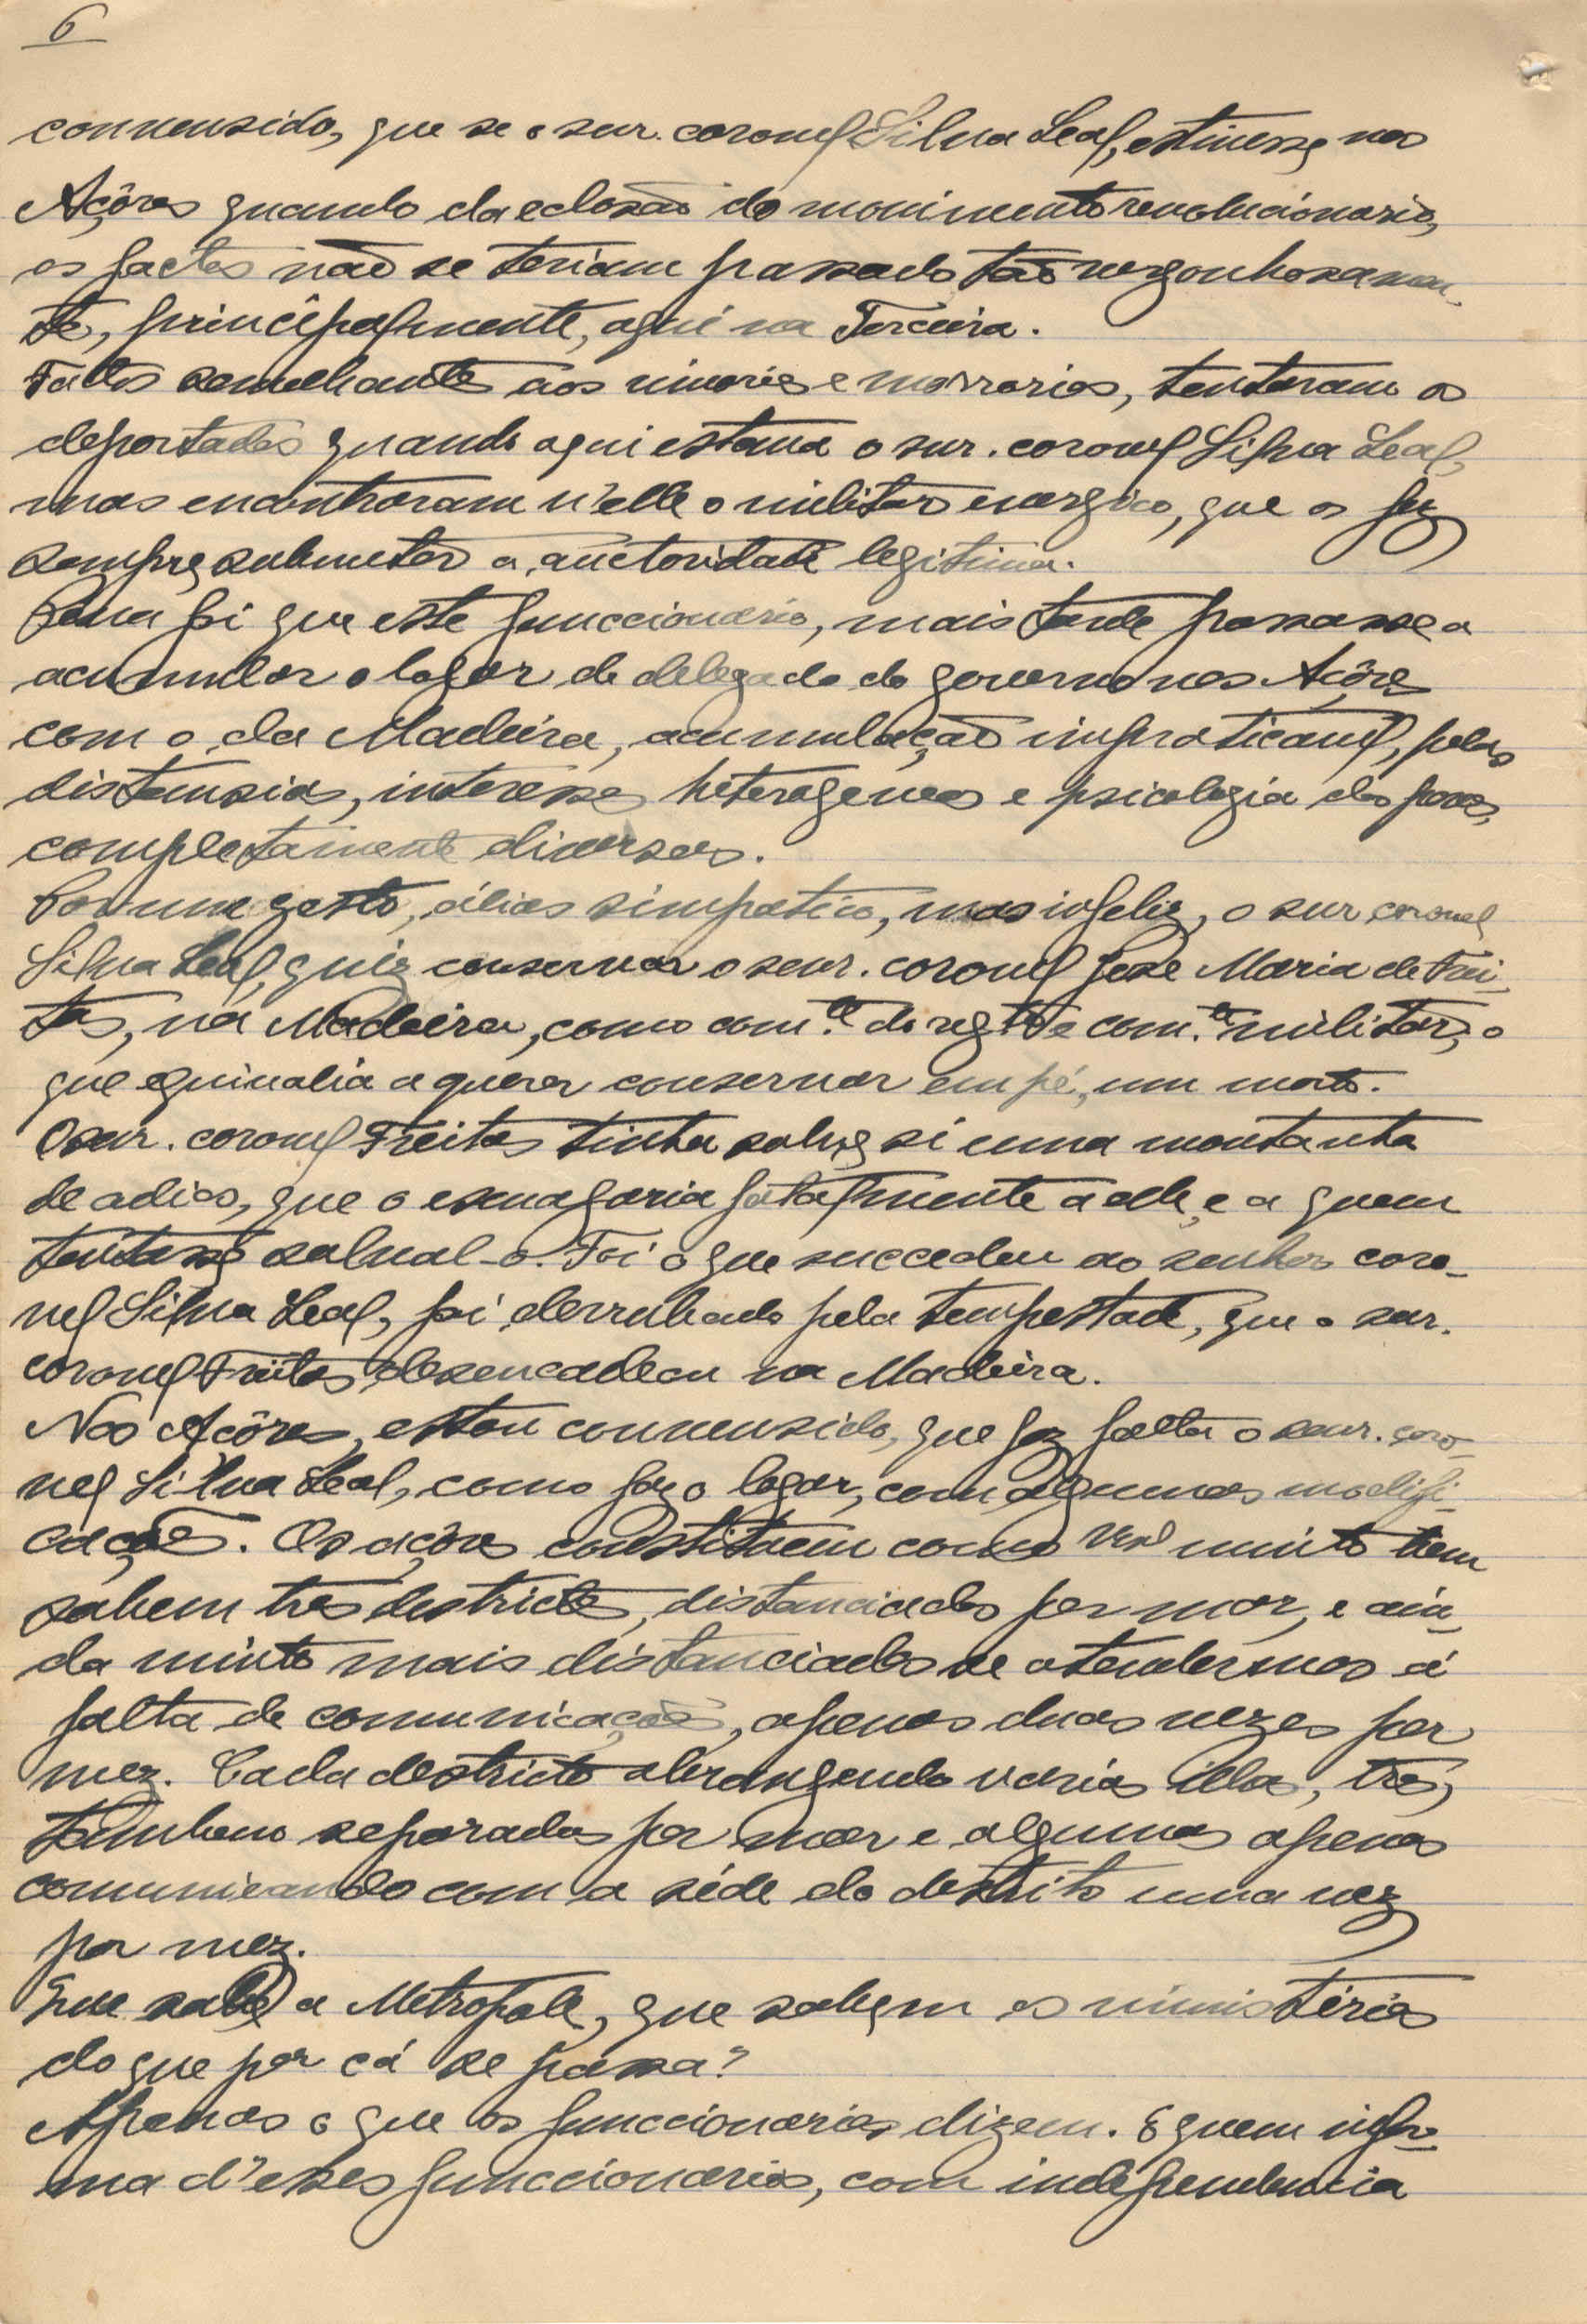 6
convensido, que se o snr. coronel Silva Leal, estivesse nos
Açôres quando da eclosão do movimento revolucionario,
os factos não se teriam passado tão vergonhosamen-
te, principalmente, aqui na Terceira.
Factos semelhantes aos  e , tentaram os
deportados quando aqui estava o snr. coronel Silva Leal,
mas encontraram n'elle o militar energico, que os fez
sempre submeter a auctoridade legitima.
Pena foi que este funccionario, mais tarde passasse a
acumular o logar de delegado do governo nos Açôres
com o da Madeira, acumulação impraticavel, pelas
distansias, interesses heterogeneos e psicologia dos povos,
completamente diversos.
Por um gesto, álias simpatico, mas infeliz, o snr coronel
Silva Leal, quiz conservar o snr. coronel José Maria de Frei-
tas, na Madeira, como com.te do regt.º e com.te militar, o
que equivalia a querer conservar em pé, um morto.
O snr. coronel Freitas tinha sobre si uma montanha
de odios, que o esmagaria fatalmente a elle, e a quem
tentasse salval-o. Foi o que succedeu ao senhor coro-
nel Silva Leal, foi derrubado pela tempestade, que o snr.
coronel Freitas desencadeou na Madeira.
Nos Açôres, estou convensido, que faz falta o snr. coro-
nel Silva Leal, como faz o logar, com algumas modifi-
cações. Os açôres constituem como V.Ex.as muito bem
sabem tres destrictos, distanciados por mar, e ain-
da muito mais distanciados se atendermos á
falta de comunicações, apenas duas vezes por
mez. Cada destricto abrangendo varias ilhas, tres,
tambem separadas por mar e algumas apenas
comunicando com a séde do destrito uma vez
por mez.
Que sabe a Metropole, que sabem os ministérios
do que por cá se passa?
Apenas o que os funccionarios dizem. E quem infor-
ma d'esses funccionarios, com independencia